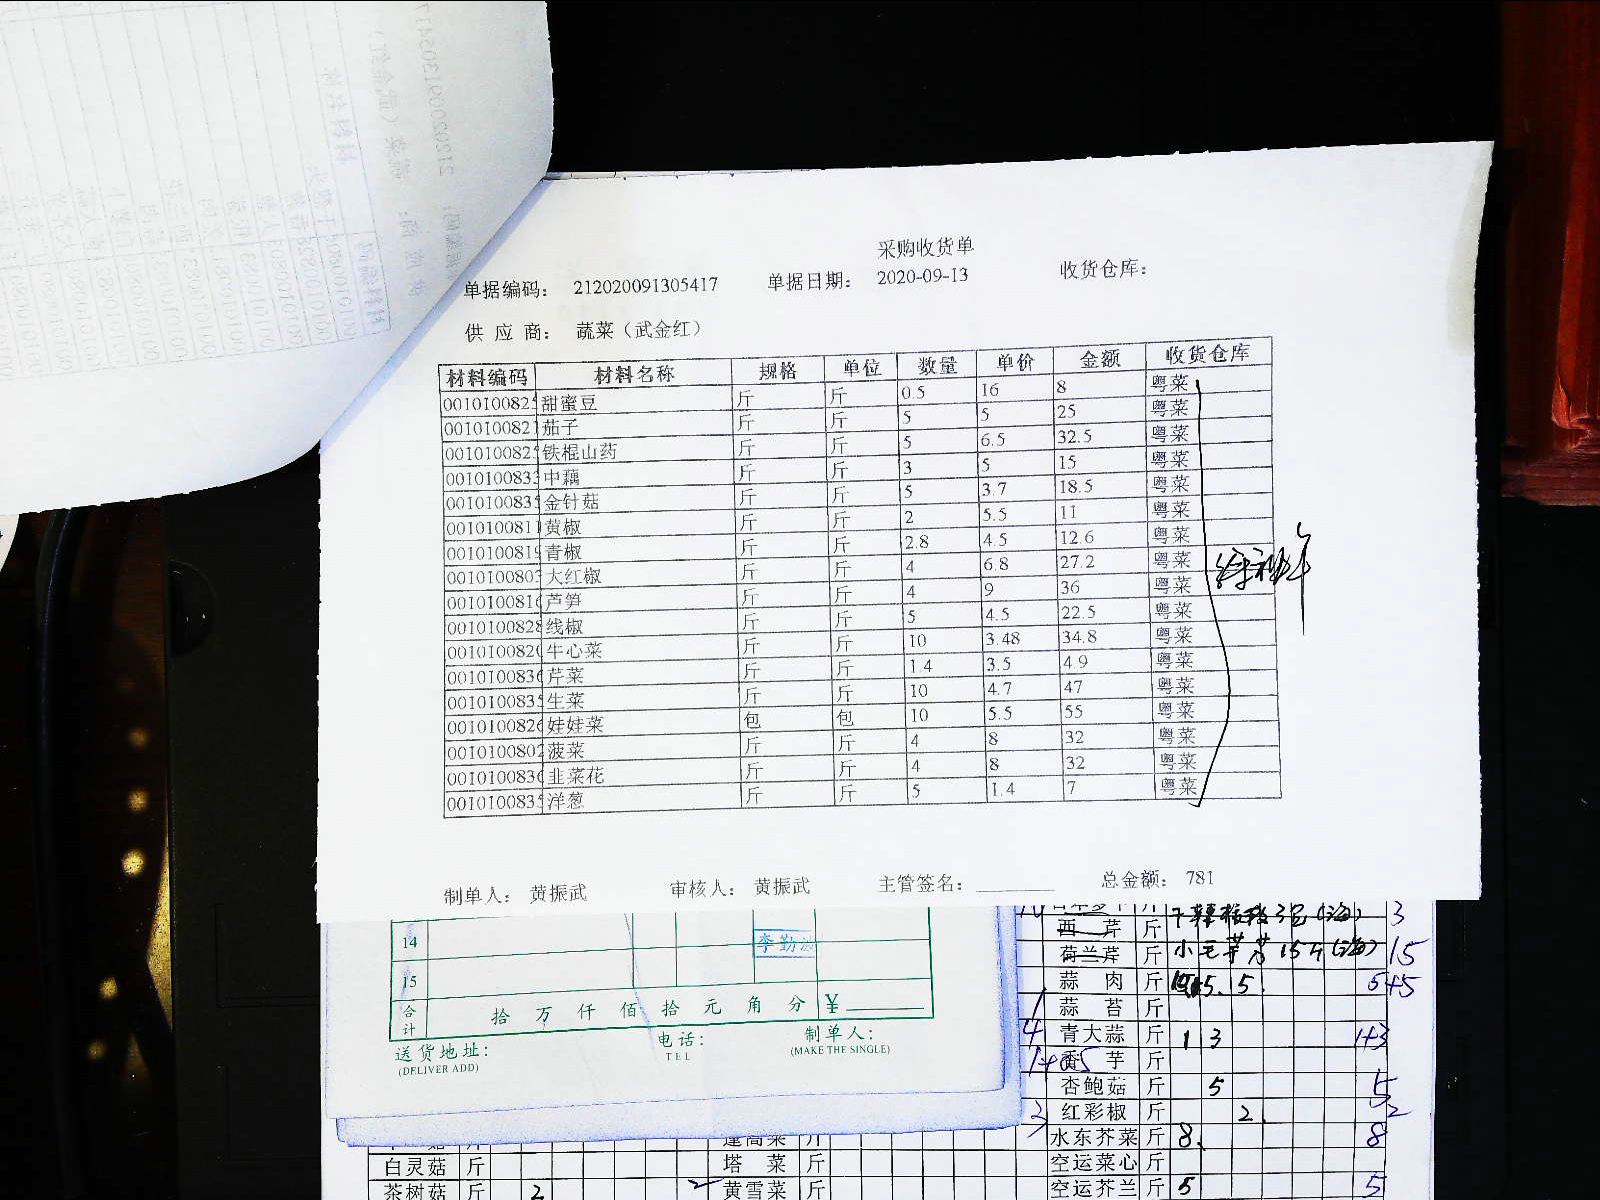 采购收货单
单据编码: 212020091305417 单据日期: 2020-09-13 收货仓库:
供 应 商: 蔬菜（武金红）
材料编码 材料名称 规格 单位 数量 单价 金额 收货仓库
0010100825 甜蜜豆 斤 斤 0.5 16 8 粤菜
0010100821 茄子 斤 斤 5 5 25 粤菜
0010100825 铁棍山药 斤 斤 5 6.5 32.5 粤菜
001010083 中藕 斤 斤 3 5 15 粤菜
001010083 金针菇 斤 斤 5 3.7 18.5 粤菜
001010081 黄椒 斤 斤 2 5.5 11 粤菜
0010100819 青椒 斤 斤 2.8 4.5 12.6 粤菜
001010080 大红椒 斤 斤 4 6.8 27.2 粤菜
001010081 芦笋 斤 斤 4 9 36 粤菜
0010100828 线椒 斤 斤 5 4.5 22.5 粤菜
001010082 牛心菜 斤 斤 10 3.48 34.8 粤菜
001010083 芹菜 斤 斤 1.4 3.5 4.9 粤菜
001010083 生菜 斤 斤 10 4.7 47 粤菜
001010082 娃娃菜 包 包 10 5.5 55 粤菜
0010100802 菠菜 斤 斤 4 8 32 粤菜
001010083 韭菜花 斤 斤 4 8 32 粤菜
001010083 洋葱 斤 斤 5 1.4 7 粤菜
制单人: 黄振武 审核人: 黄振武 主管签名: 总金额: 781
14 李勤
15
合计 拾 万 仟 佰 拾 元 角 分 ¥
送货地址: 电话: 制单人:
(DELIVER ADD) TEL (MAKE THE SINGLE)
西 芹 斤 3
荷兰芹 斤 小毛芋艿 15斤 15
蒜 肉 斤 5. 5 5+5
蒜 苔 斤
4 青大蒜 斤 1 3 1+3
香 芋 斤
杏鲍菇 斤 5 5
红彩椒 斤 2 2
水东芥菜 斤 8 8
空运菜心 斤
空运芥兰 斤 5 5
蓬蒿菜 斤
白灵菇 斤 塔 菜 斤
茶树菇 斤 2 黄雪菜 斤